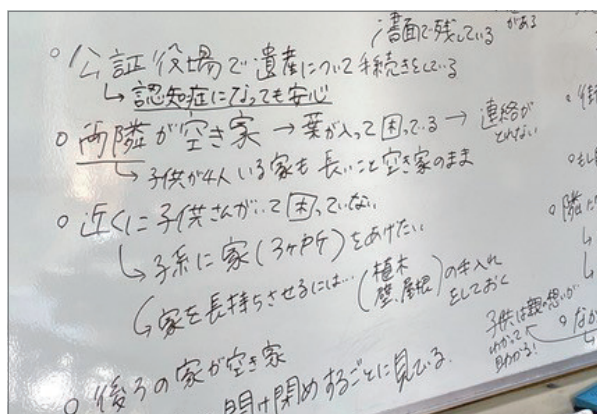 書面で残している
がある
○公証役場で遺産について手続きをしている
↳認知症になっても安心
○両隣が空き家→葉が入って困っている→連絡がとれない
↳子供が4人いる家も長いこと空き家のまま
○近くに子供さんがいて困っていない
↳子孫に家(3ヶ所)をあげたい
↳家を長持ちさせるには…(植木 壁、屋根)の手入れをしておく
○後ろの家が空き家
開け閉めするごとに見ている。
子供は親の想いがわかって助かる!
○街
○隣に
○なが